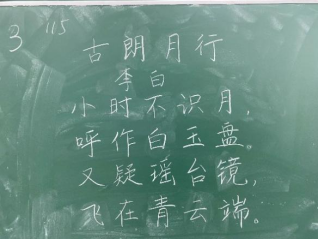 3 115
古朗月行
李白
小时不识月，
呼作白玉盘。
又疑瑶台镜，
飞在青云端。